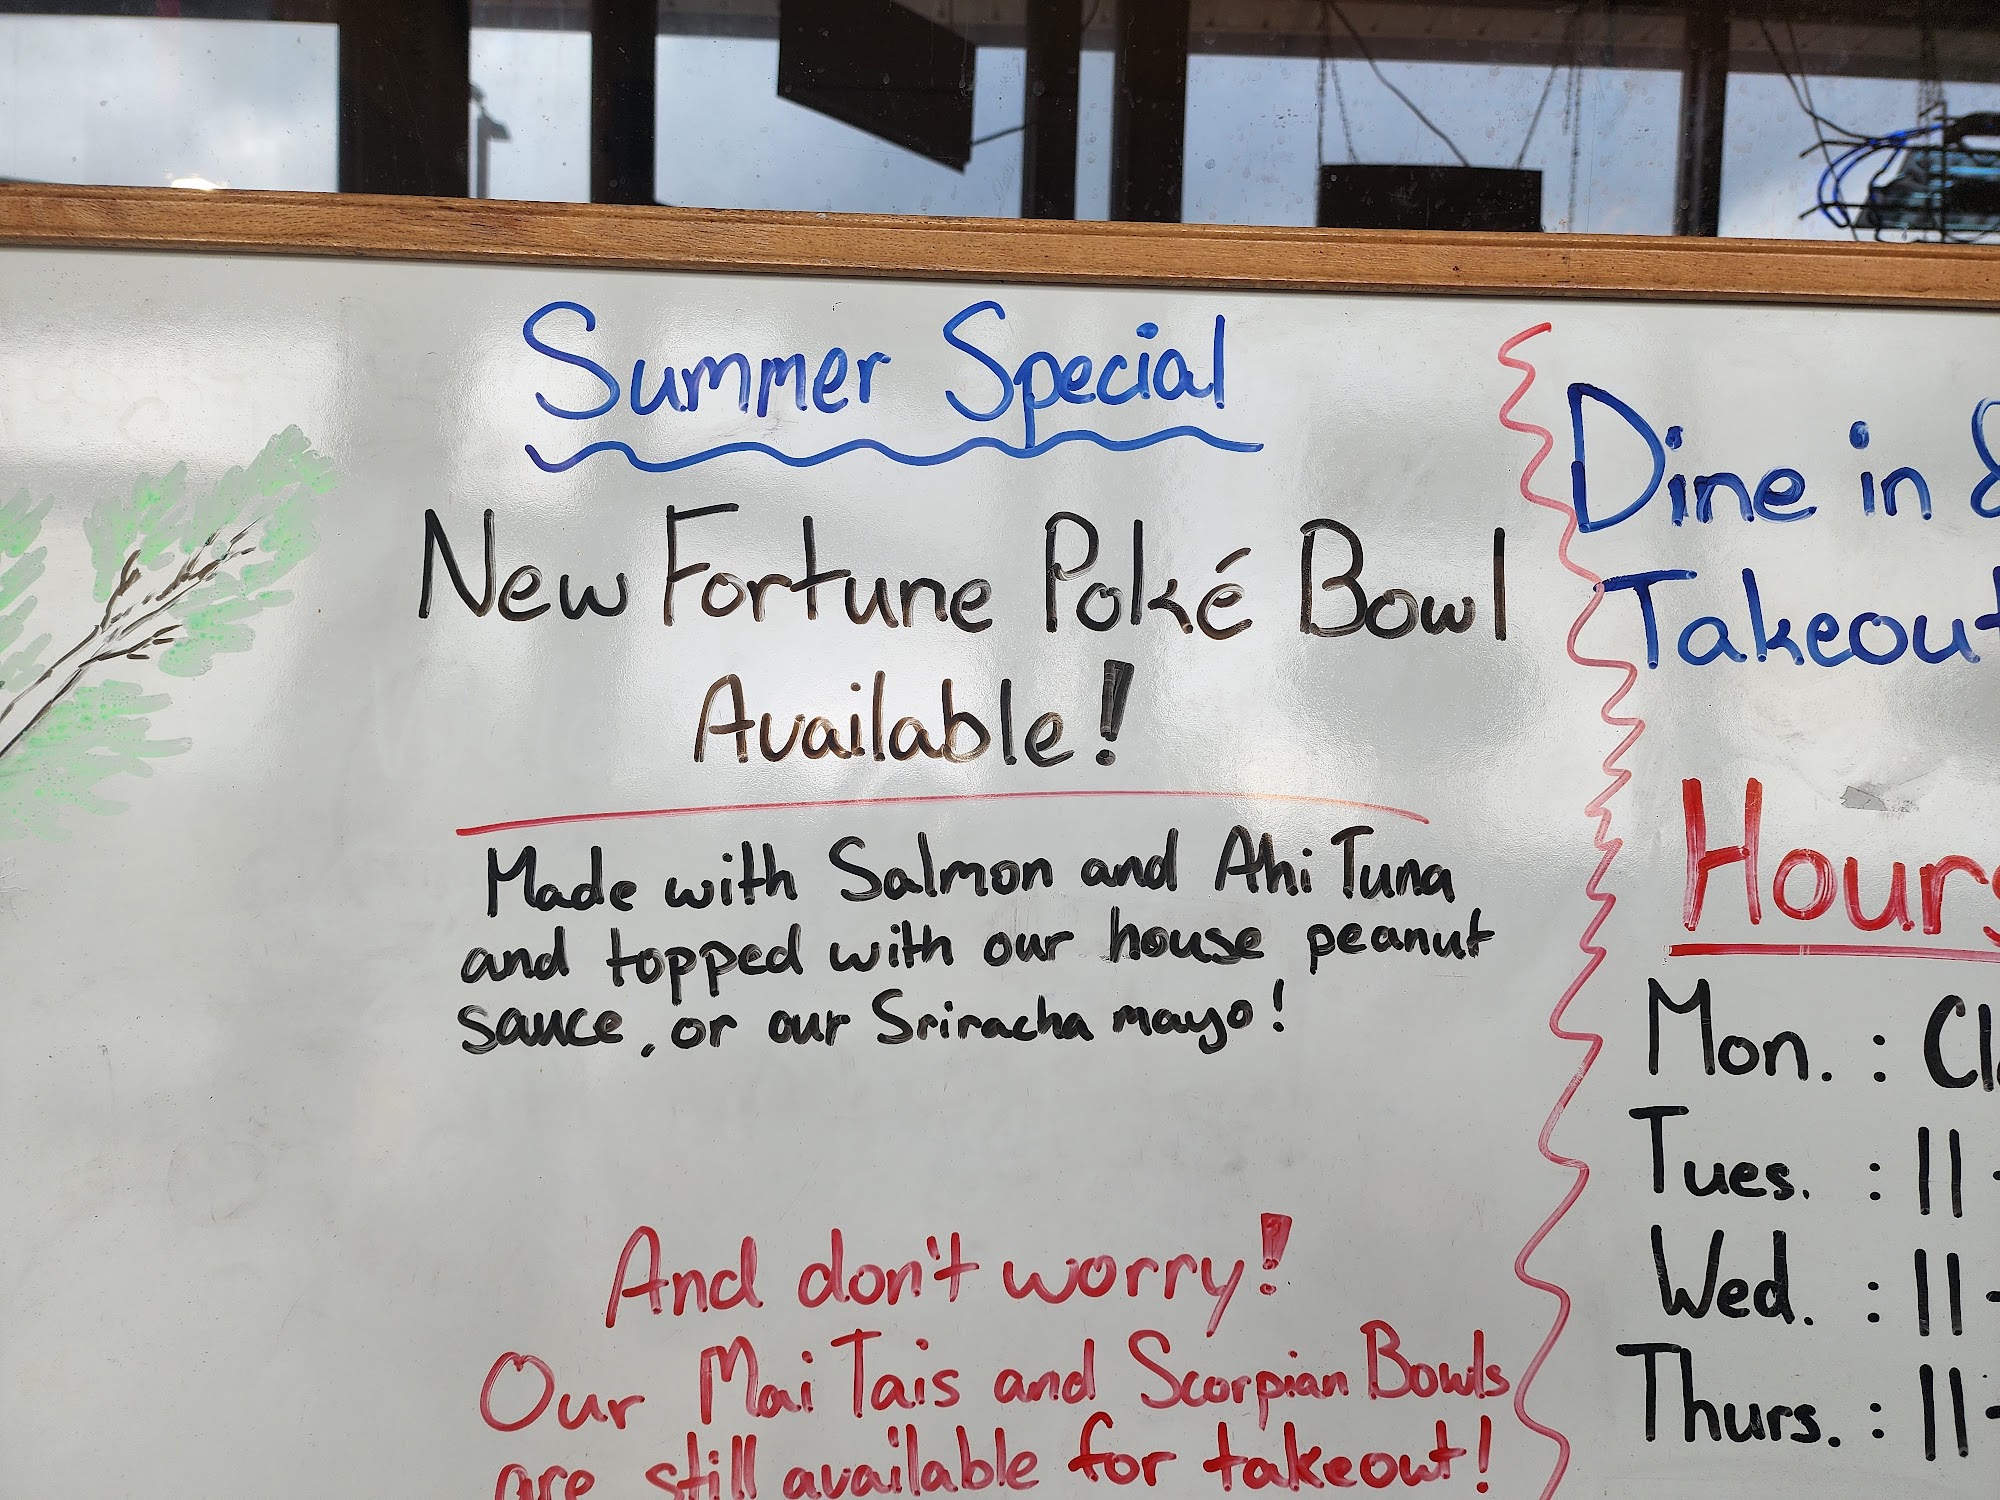 Summer Special
New Fortune Poké Bowl
Available!
Made with Salmon and Ahi Tuna
and topped with our house peanut
sauce, or our Sriracha mayo!
And don't worry!
Our Mai Tais and Scorpian Bowls
are still available for takeout!
Dine in &
Takeout
Hours
Mon. : Cl
Tues. : 11 -
Wed. : 11 -
Thurs. : 11 -